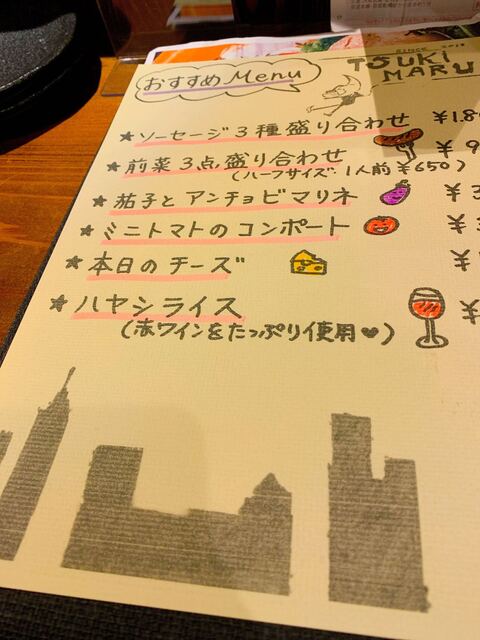 おすすめ Menu
SINCE 2018
TSUKI
MARU
★ソーセージ3種盛り合わせ
★前菜3点盛り合わせ
(ハーフサイズ 1人前¥650)
★茄子とアンチョビマリネ
★ミニトマトのコンポート
★本日のチーズ
★ハヤシライス
(赤ワインをたっぷり使用♥)